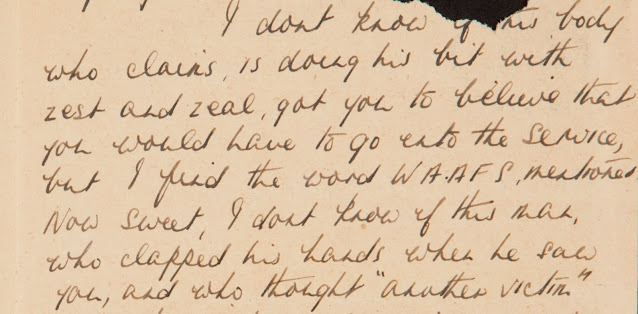 I dont know if this body
who claims, is doing his bit with
zest and zeal, got you to believe that
you would have to go into the service,
but I find the word W.A.AFS, mentioned
Now sweet, I dont know if this man,
who clapped his hands when he saw
you, and who thought "another victim"